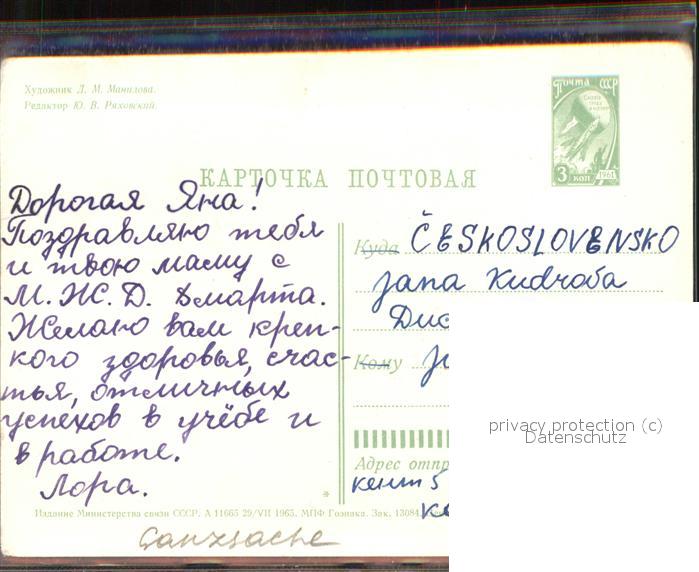 Художник Л. М. Манилова.
Редактор Ю. В. Ряховский.
Почта СССР
3 коп 1961
КАРТОЧКА ПОЧТОВАЯ
Дорогая Яна!
Поздравляю тебя
и твою маму с
М.Ж.Д. 8 марта.
Желаю вам креп-
кого здоровья, счас-
тья, отличных
успехов в учёбе и
в работе.
Лора.
Куда ČESKOSLOVENSKO
Jana Kudrova
Кому
Адрес отпр
*
Издание Министерства связи СССР. А 11665 29/VII 1965. МПФ Гознака. Зак. 13084.
Ganzsache
privacy protection (c)
Datenschutz